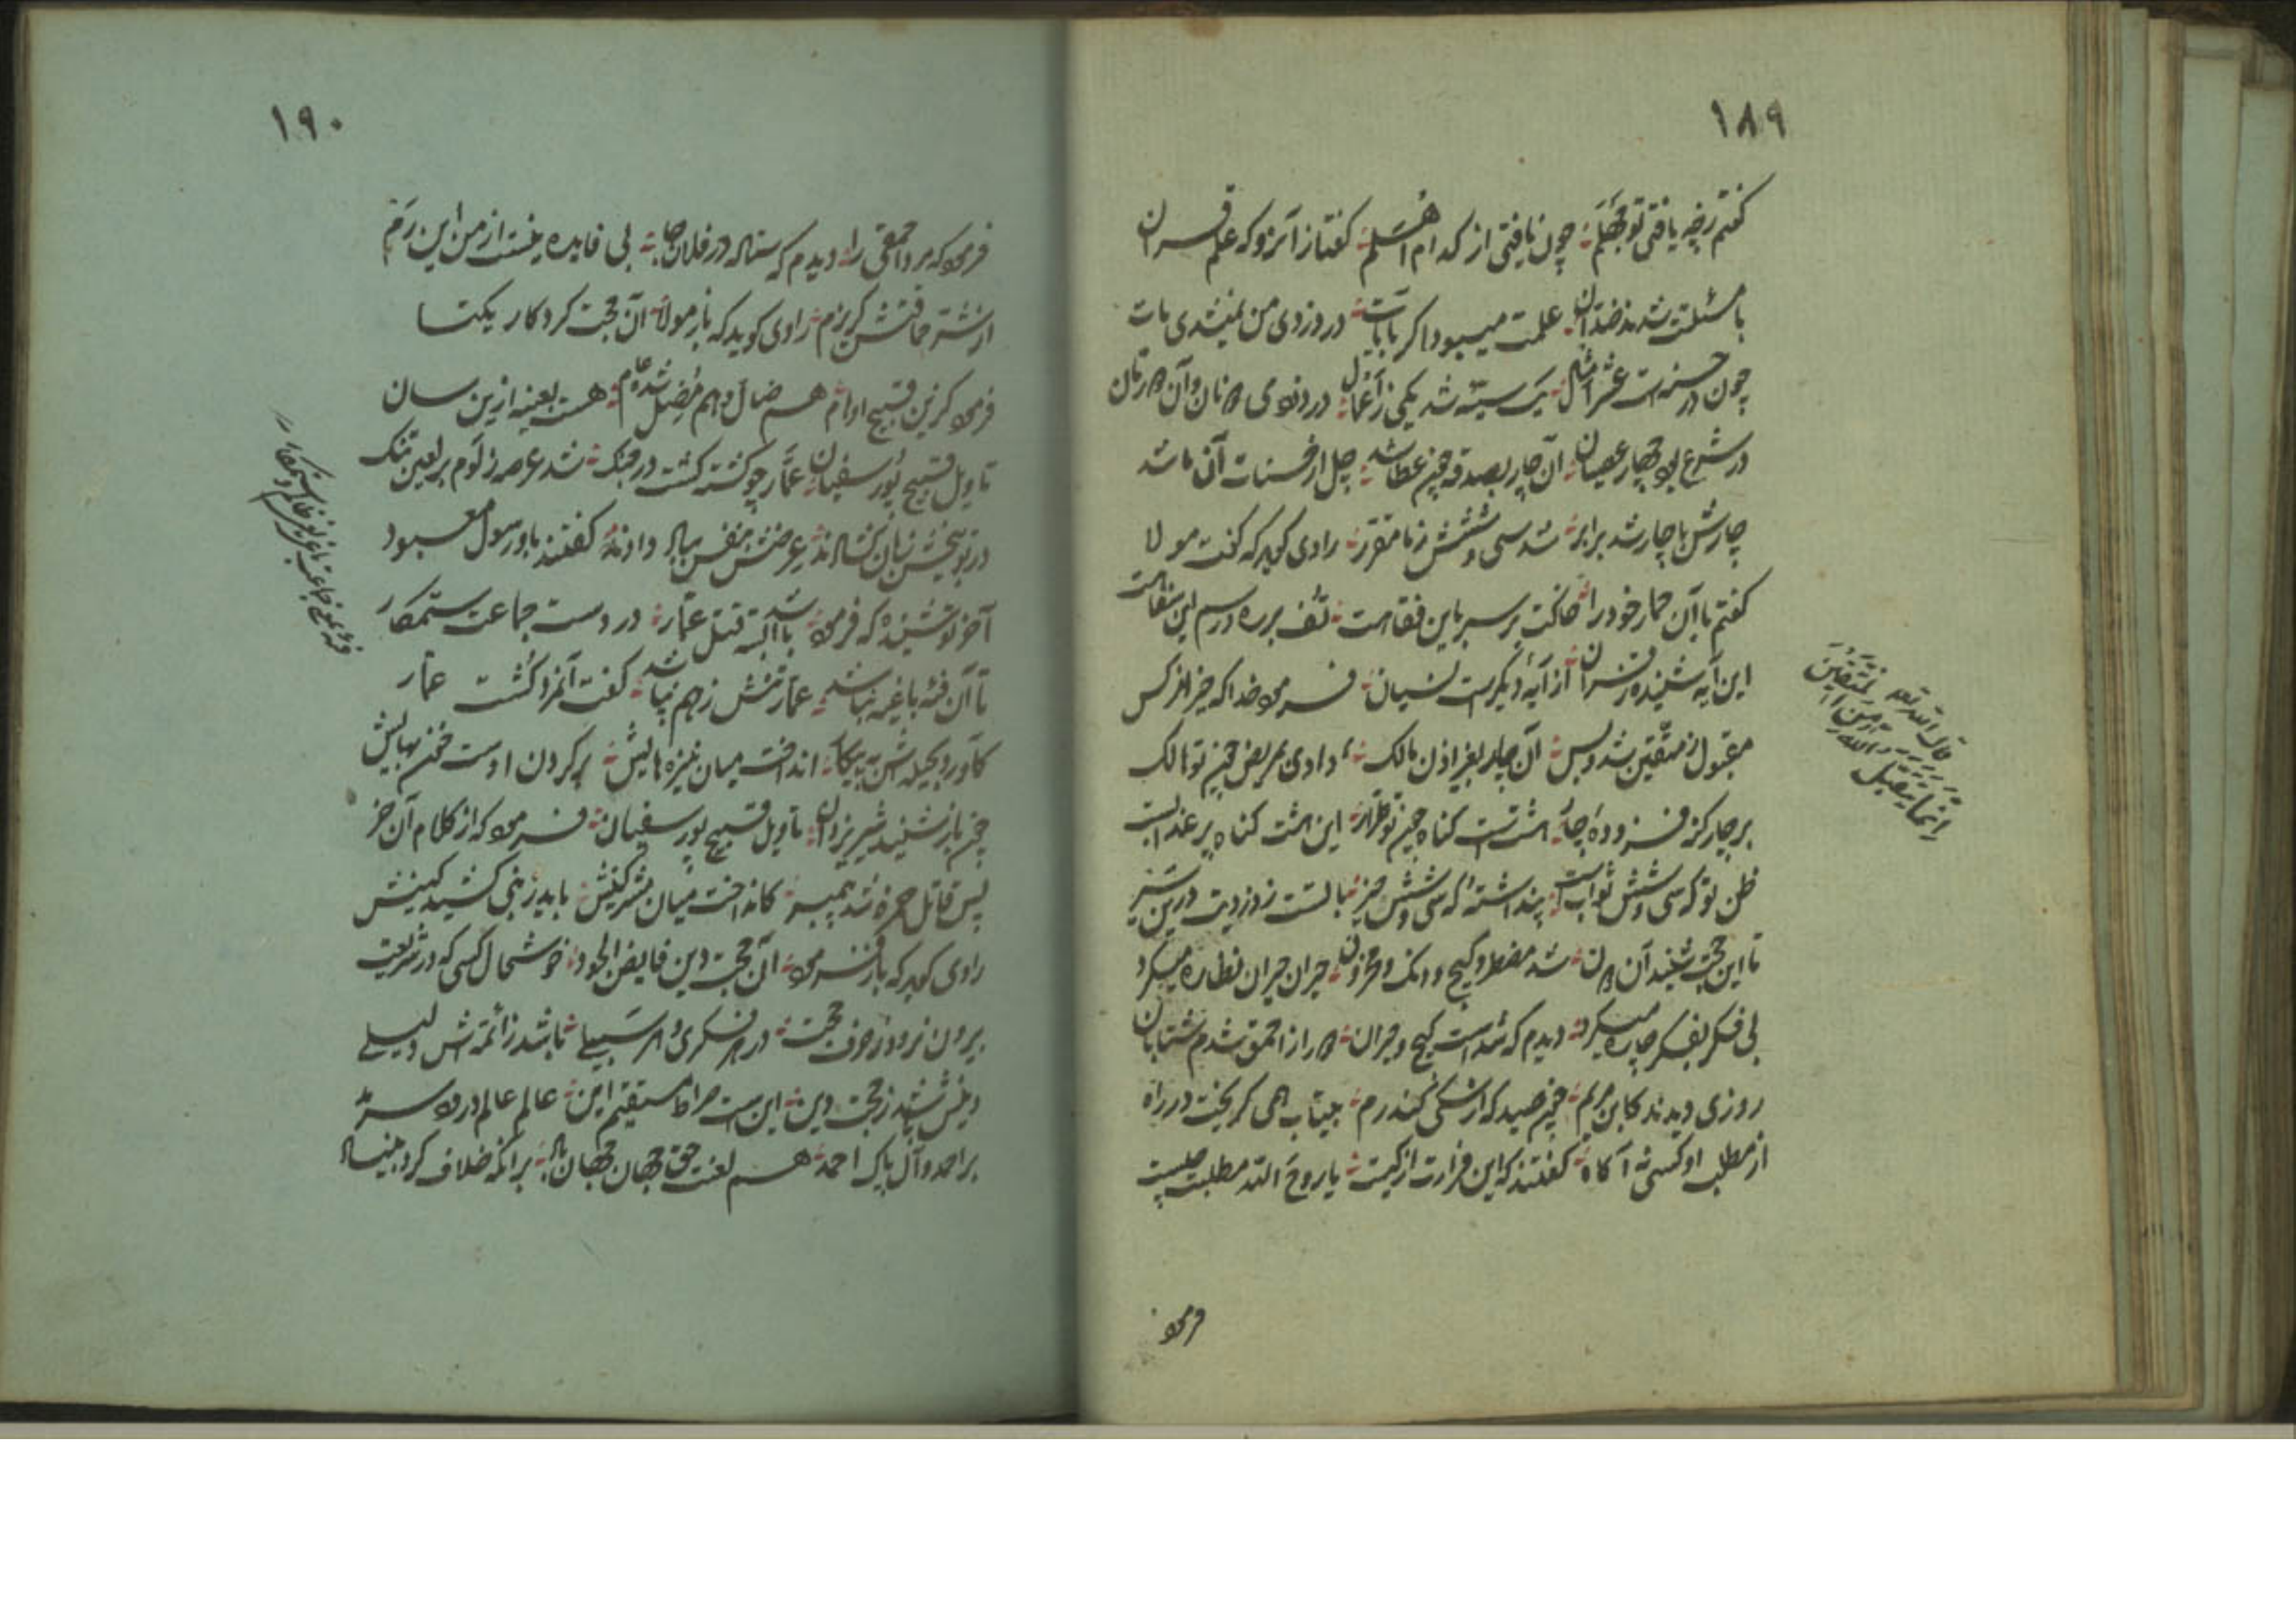 ١٨٩
کفتم ز چه یافتی تو جهلم چون یافتی از کدام اسهلم کفتا ز آنرو که علم قران
با مسئلت شد ند ضدان علمت میبود اکر بابات در دزدی من نمیشدی مات
چون در حسنه است عشر امثال یک سیئه شد یکی ز اعمال در دزدی نان و آن رمان
در شرع بود چهار عصیان آن چار بصدقه چون عطا شد چل از حسنات آن ما شد
چارش با چار شد برابر شد سی و شش ز نا مقرر راوی کوید که کفت مولا
کفتم با آن حمار خود را خاکت بر سر باین فقاهت تف بر ره و رسم این سفاهت
این آیه شنیده ز قران از آیه دیکرست نسیان فرمود خدا که جز از کس
مقبول ز متقین شد و بس آن چار بغیر اذن مالک دادی بمریض چون تو هالک
بر چار کز فزوده چار هشت است کناه چون تو طرار این هشت کناه پر عذابست
ظن تو که سی و شش ثوابست پنداشته که سی و شش چیز بالست ز دزدیت درین نیز
تا این حجت شنید آن دون شد مضطر و کیج و دنک و محزون حیران حیران نظاره میکرد
بی فکر بفکر چاره میکرد دیدم که شد است کیج و حیران در راز احمق شدم شتابان
روزی دیدند کابن مریم چون صید که از سکی کند رم بیتاب همی کریخت در راه
از مطلب او کسی نه آکاه کفتند که این فرارت از کیست یا روح الله مطلبت چیست
قال الله تعه
انما یتقبل الله من المتقین
فرمود
١٩٠
فرمود که مرد احمقی را دیدم که ستاده در فلان جا بی فایده نیست از من این رم
از شر حماقتش کریزم راوی کوید که باز مولا آن حجت کردکار یکتا
فرمود کزین قبیح اوهام هم ضال و هم مضل شده عام هست بعینه ازین سان
تاویل قبیح پور سفیان عمار چو کشته کشت در جنک شد عرصه ز لوم بر لعین تنک
در توبیخش زبان کشادند عرضش بنفس بباد دادند کفتند باو رسول معبود
آخر تو شنیده که فرمود با البته شد قتل عمار در دست جماعت ستمکار
تا آن فئه باغیه نباشد عمار تنش ز هم نپاشد کفت آنمرد کشت عمار
کاورد بحیله اش به پیکار انداخت میان نیزه هایش بر کردن اوست خون بهایش
چون باز شنید شیر یزدان تاویل قبیح پور سفیان فرمود که از کلام آن خر
پس قاتل حمزه شد پیمبر کانداخت میان مشرکینش باید ز نبی کشید کینش
راوی کوید که باز فرمود آن حجت دین فایض الجود خوشحال کسی که در شریعت
بیرون نرود ز حرف حجت در هر فکری و هر سبیلے باشد ز ائمه اش دلیلے
دینش باشد ز حجت دین این است صراط مستقیم این عالم عالم درود سرمد
بر احمد و آل پاک احمد هم لعنت حق جهان جهان باد بر آنکه خلاف کرد بنیاد
فئه یعنی جماعت باغیه یعنی ظالم و ستمکار